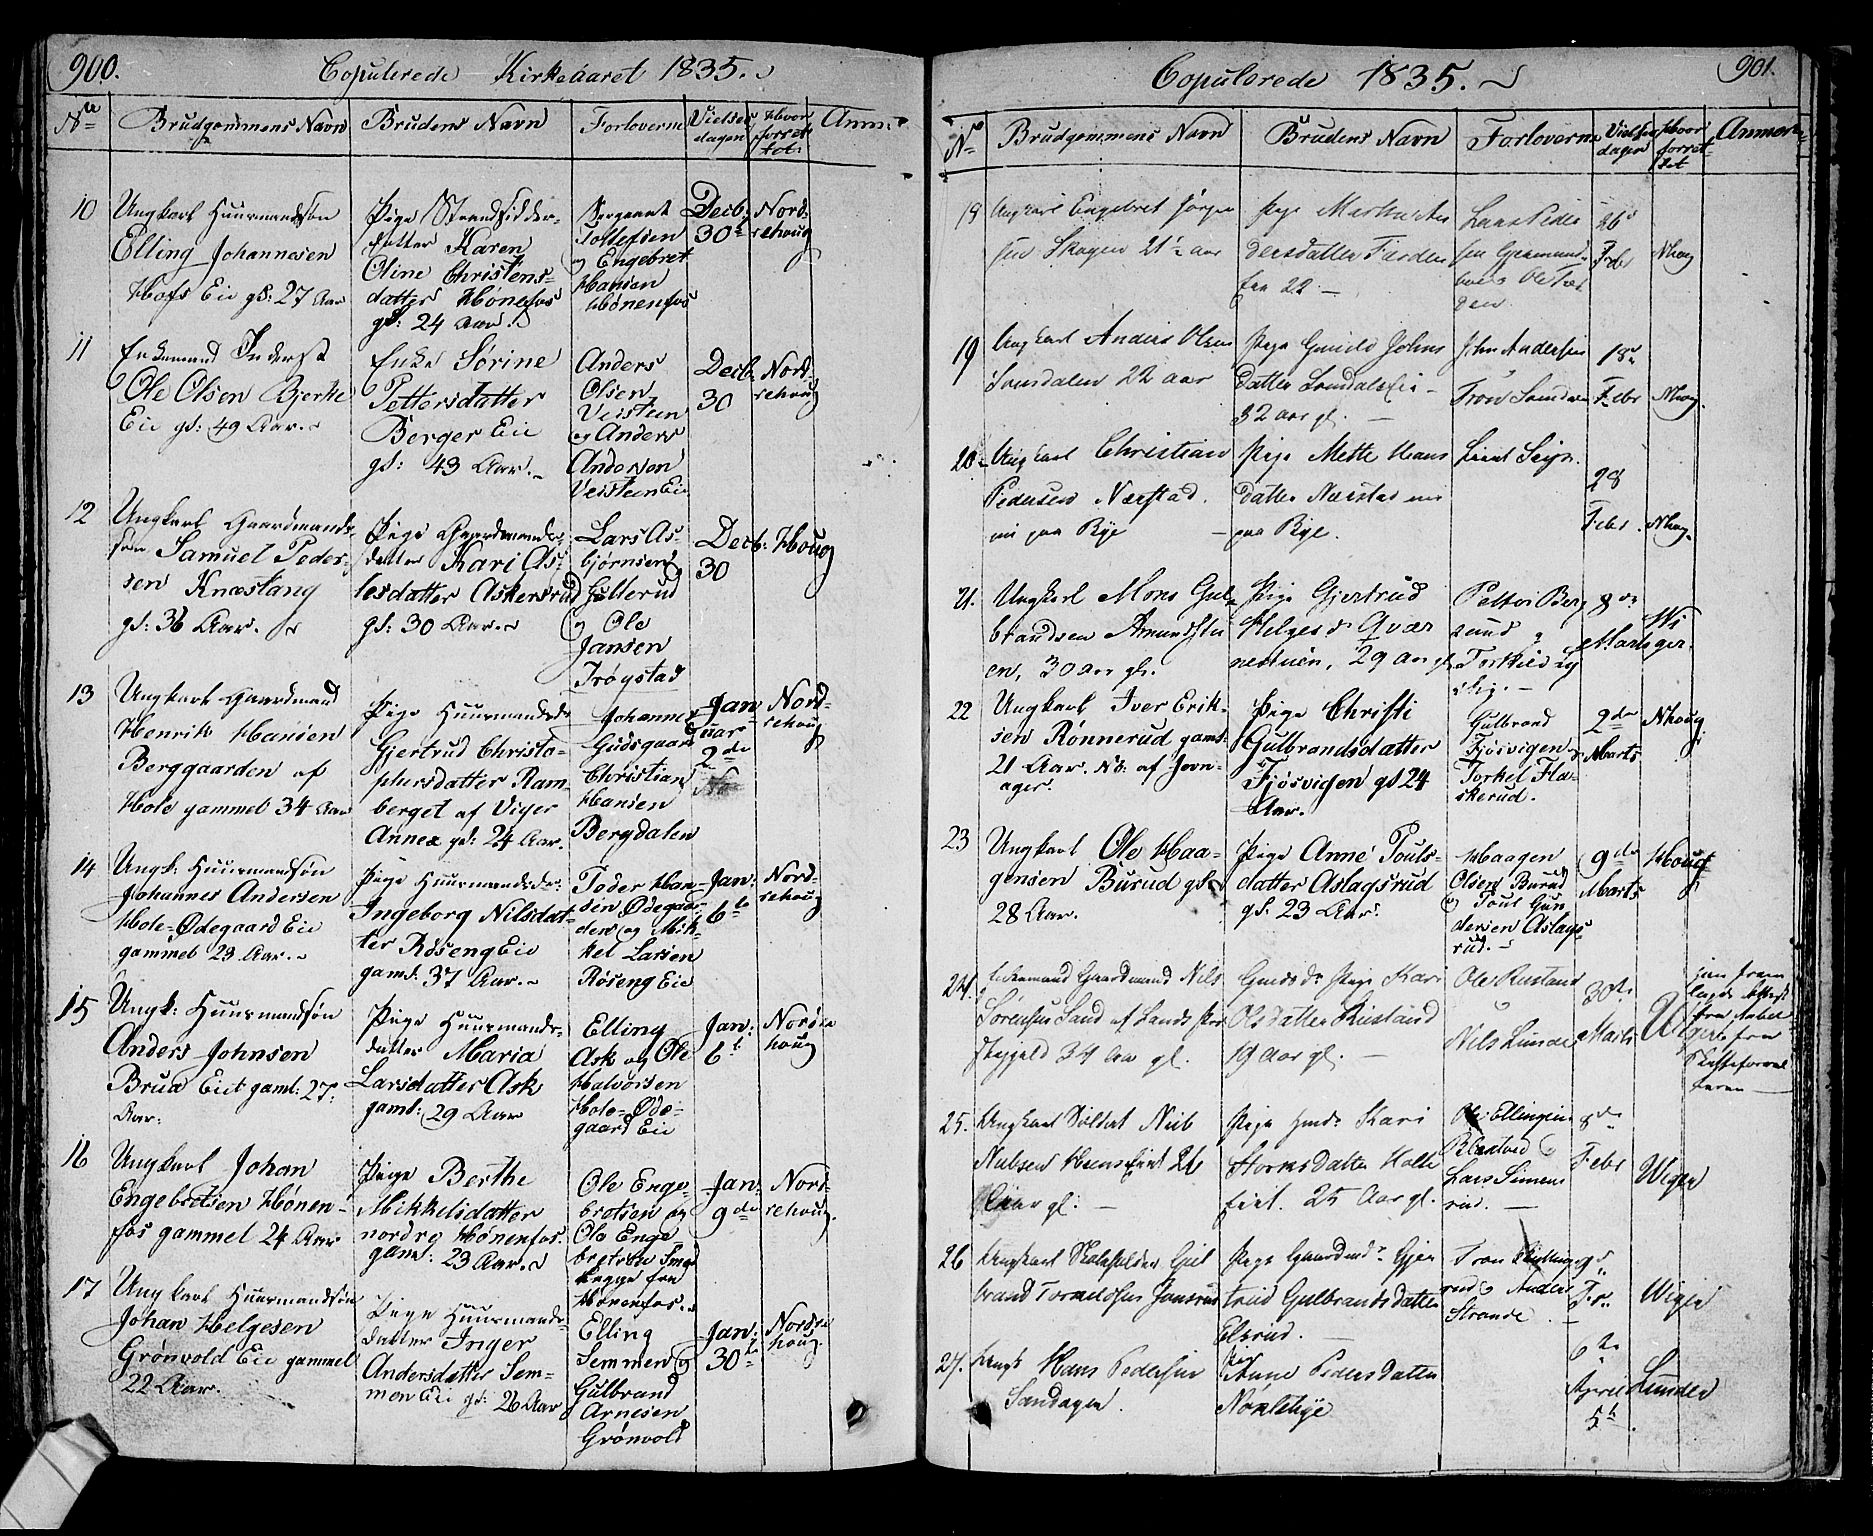 900.
Copulerede Kirkeaaret 1835.
No
Brudgommens Navn
Brudens Navn
Forloverne
Vielses dagen
Hvor forret tet.
Anm:
10
Ungkarl Huusmandssøn
Elling Johannesen
Hofs Eie gl: 27 Aar
Pige Strandsidder-
datter Karen
Oline Christens-
datter Hønefos
gl: 24 Aar.
Sergeant
Tollefsen
og Engebret
Hansen
Hønenfos
Decb:
30te
Nord-
rehoug
11
Enkemand Inderst
Ole Olsen Bjerke
Eie gl: 49 Aar.
Enke Sørine
Pettersdatter
Berger Eie
gl: 43 Aar.
Anders
Olsen
Veisteen
og Anders
Andersen
Veisteen Eie
Decb:
30
Nord-
rehoug
12
Ungkarl Gaardmands-
søn Samuel Peder-
sen Knæstang
gl: 36 Aar.
Pige Gaardmands-
datter Kari As-
lesdatter Askersrud
gl: 30 Aar.
Lars As-
bjørnsen
Gulterud
og Ole
Jansen
Trøgstad
Decb:
30
Houg
13
Ungkarl Gaardmand
Henrik Hansen
Berggaarden af
Hole gammel 34 Aar
Pige Huusmandsdr
Gjertrud Christo-
phersdatter Ram-
berget af Viger
Annex gl: 24 Aar.
Johannes
Gudsgaard
Christian
Hansen
Bergdalen
Jan
uar
2de
Nord-
rehoug
14
Ungk: Huusmandssøn
Johannes Andersen
Hole-Ødegaard Eie
gammel 23 Aar.
Pige Huusmandsdr:
Ingeborg Nilsdat-
ter Røseng Eie
gaml: 37 Aar.
Peder Han-
sen Ødegaar-
den og Mik-
kel Larsen
Røseng Eie
Jan:
6te
Nord-
rehoug
15
Ungk: Huusmandssøn
Anders Johnsen
Brua Eie gaml: 27
Aar:
Pige Huusmands-
datter Maria
Larsdatter Ask
gaml: 29 Aar
Elling
Ask og Ole
Halvorsen
Hole-Øde-
gaard Eie
Jan:
6t
Nordre
houg
16
Ungkarl Johan
Engebretsen Hønen-
fos gammel 24 Aar
Pige Berthe
Mikkelsdatter
nordre Hønenfos.
gaml: 23 Aar.
Ole Enge-
bretsen og
Ole Enge
bretsen
begge fra
Hønenfos.
Jan:
9de
Nord-
rehoug.
17
Ungkarl Huusmandssøn
Johan Helgesen
Grønvold Eie gammel
22 Aar.
Pige Huusmands-
datter Inger
Andersdatter Sem-
men Eie gl: 26 Aar
Elling
Semmen og
Gulbrand
Arnesen
Grønvold
Jan:
30te
Nordre
houg.
901.
Copulerede 1835.
No
Brudgommens Navn
Brudens Navn
Forloverne
Vielses dagen
Hvor forret tet
Anmærk
19
Ungkarl Engebret Jørgen
sen Skagen 21½ aar
Pige Martha An
dersdatter
22
Lars Peder
sen
26
Febr
Nhoug
19
Ungkarl Anders Olsen
Somdalen 22 aar
Pige Gunild Johns
datter Somdalseie
32 aar gl.
John Andersen
Tron Somdalen
18de
Febr
Nhoug.
20
Ungkarl Christian
Pedersen Nærstad
nu paa Bye
Pige Mette Hans
datter Nærstad nu
paa Bye.
28
Febr.
Nhoug.
21.
Ungkarl Mons Gul-
brandsen Amundstu
en, 30 aar gl.
Pige Gjertrud
Helgesd Qvær
nestuen, 29 aar gl
8de
Marts
Wi
ger.
22
Ungkarl Iver Erik-
sen Rønnerud gaml:
21 Aar. NB. af Jevn-
ager.
Pige Christi
Gulbrandsdatter
Fjøsvigen gl 24
Aar.
Gulbrand
Fjøsvigen
Torkel Flæ-
skerud.
2den
Marts
Nhoug.
23
Ungkarl Ole Haa-
gensen Burud gl:
28 Aar.
Pige Anne Pouls-
datter Aslagsrud
gl: 23 Aar.
Haagen
Olsen Burud
og Poul Gun
dersen Aslags
rud.
9de
Marts
Houg
24.
Enkemand Gaardmand Nils
Sørensen Sand af Lands Præ
stegjeld 34 Aar gl.
Gmds dr Pige Kari
Olsdatter Rustand
19 aar gl.
Ole Rustand
Nils Lunde
30te
Marts
25.
Ungkarl Soldat Niels
Nielsen 26
Aar gl.
Pige Kari
datter
eiet. 25 Aar gl.
Ole Ellingsen
Lars Simens
rud.
8de
Febr
Wiger
26
Ungkarl
brand
Pige Gaardmdr Gjer
trud Gulbrandsdatter
Elsrud.
Tron
Anders
Strande
Wiger
27.
Ungk Hans Pedersen
Sandagen.
Pige
Anne Pedersdatter
6te
April
5t
Lunder